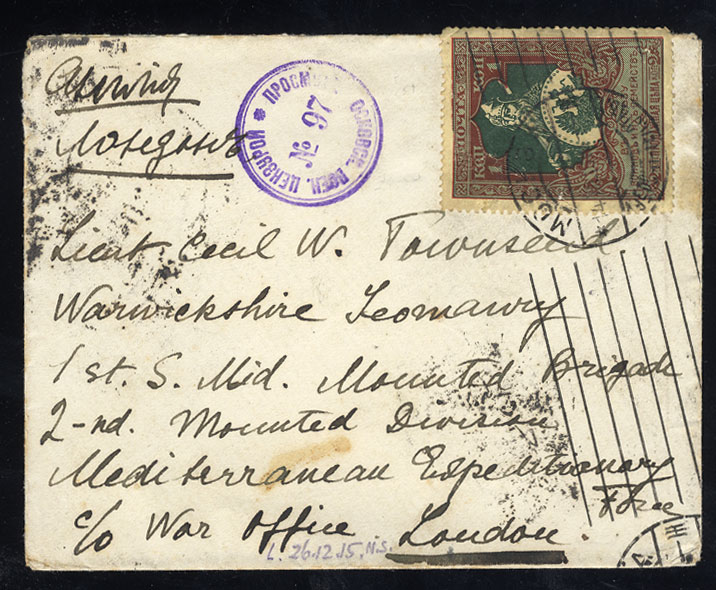 Англія
Лондонъ
ПРОСМОТР МОСКОВСК. ВОЕН. ЦЕНЗУРОЙ
№ 97
ПОЧТ
КОП 1 КОП
Lieut Cecil W. Townsend
Warwickshire Yeomanry
1st. S. Mid. Mounted Brigade
2-nd. Mounted Division
Mediterranean Expeditionary
Force
c/o War Office London
L. 26.12.15. N.S.